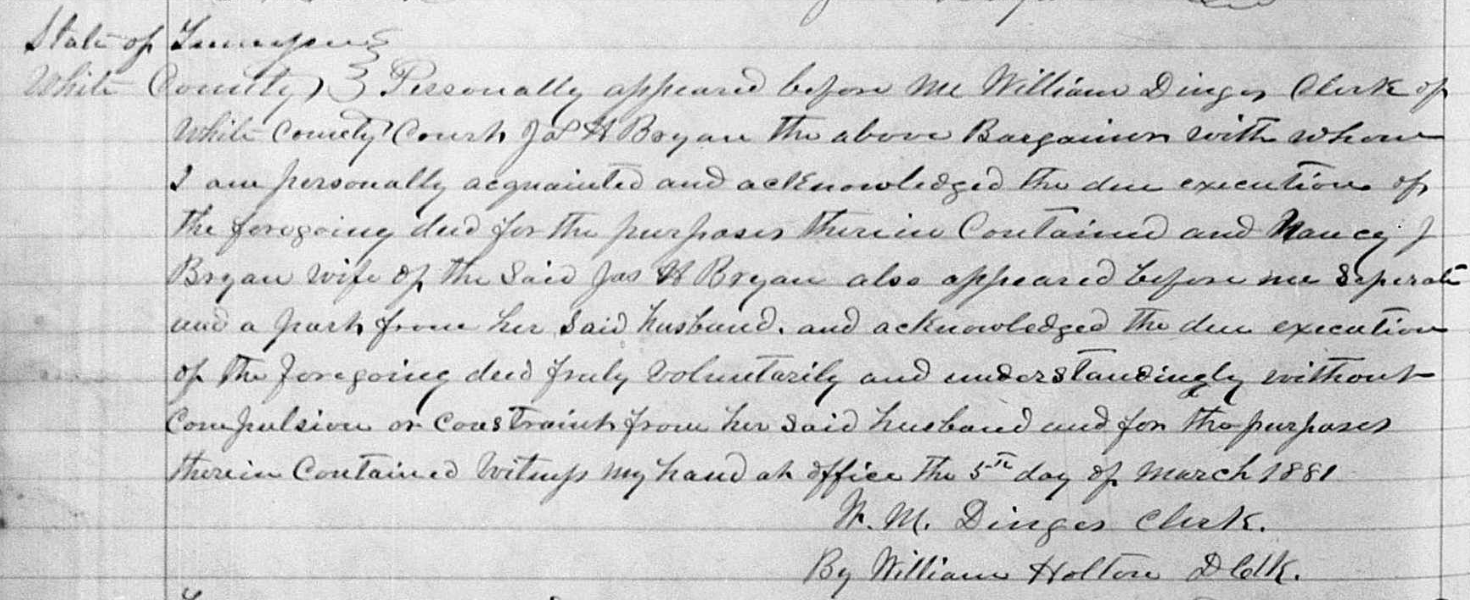 State of Tennessee
White County } Personally appeared before me William Dinges Clerk of
White County Court Jas H Bryan the above Bargainor with whom
I am personally acquainted and acknowledged the due execution of
the foregoing deed for the purposes therein Contained and Nancy J
Bryan wife of the Said Jas H Bryan also appeared before me Seperate
and a part from her Said husband. and acknowledged the due execution
of the foregoing deed fraly Voluntarily and understandingly without
Compulsion or Constraint from her Said husband and for the purposes
therein Contained Witness my hand at office the 5th day of March 1881
W. M. Dinges Clerk.
By William Holton D Clk.